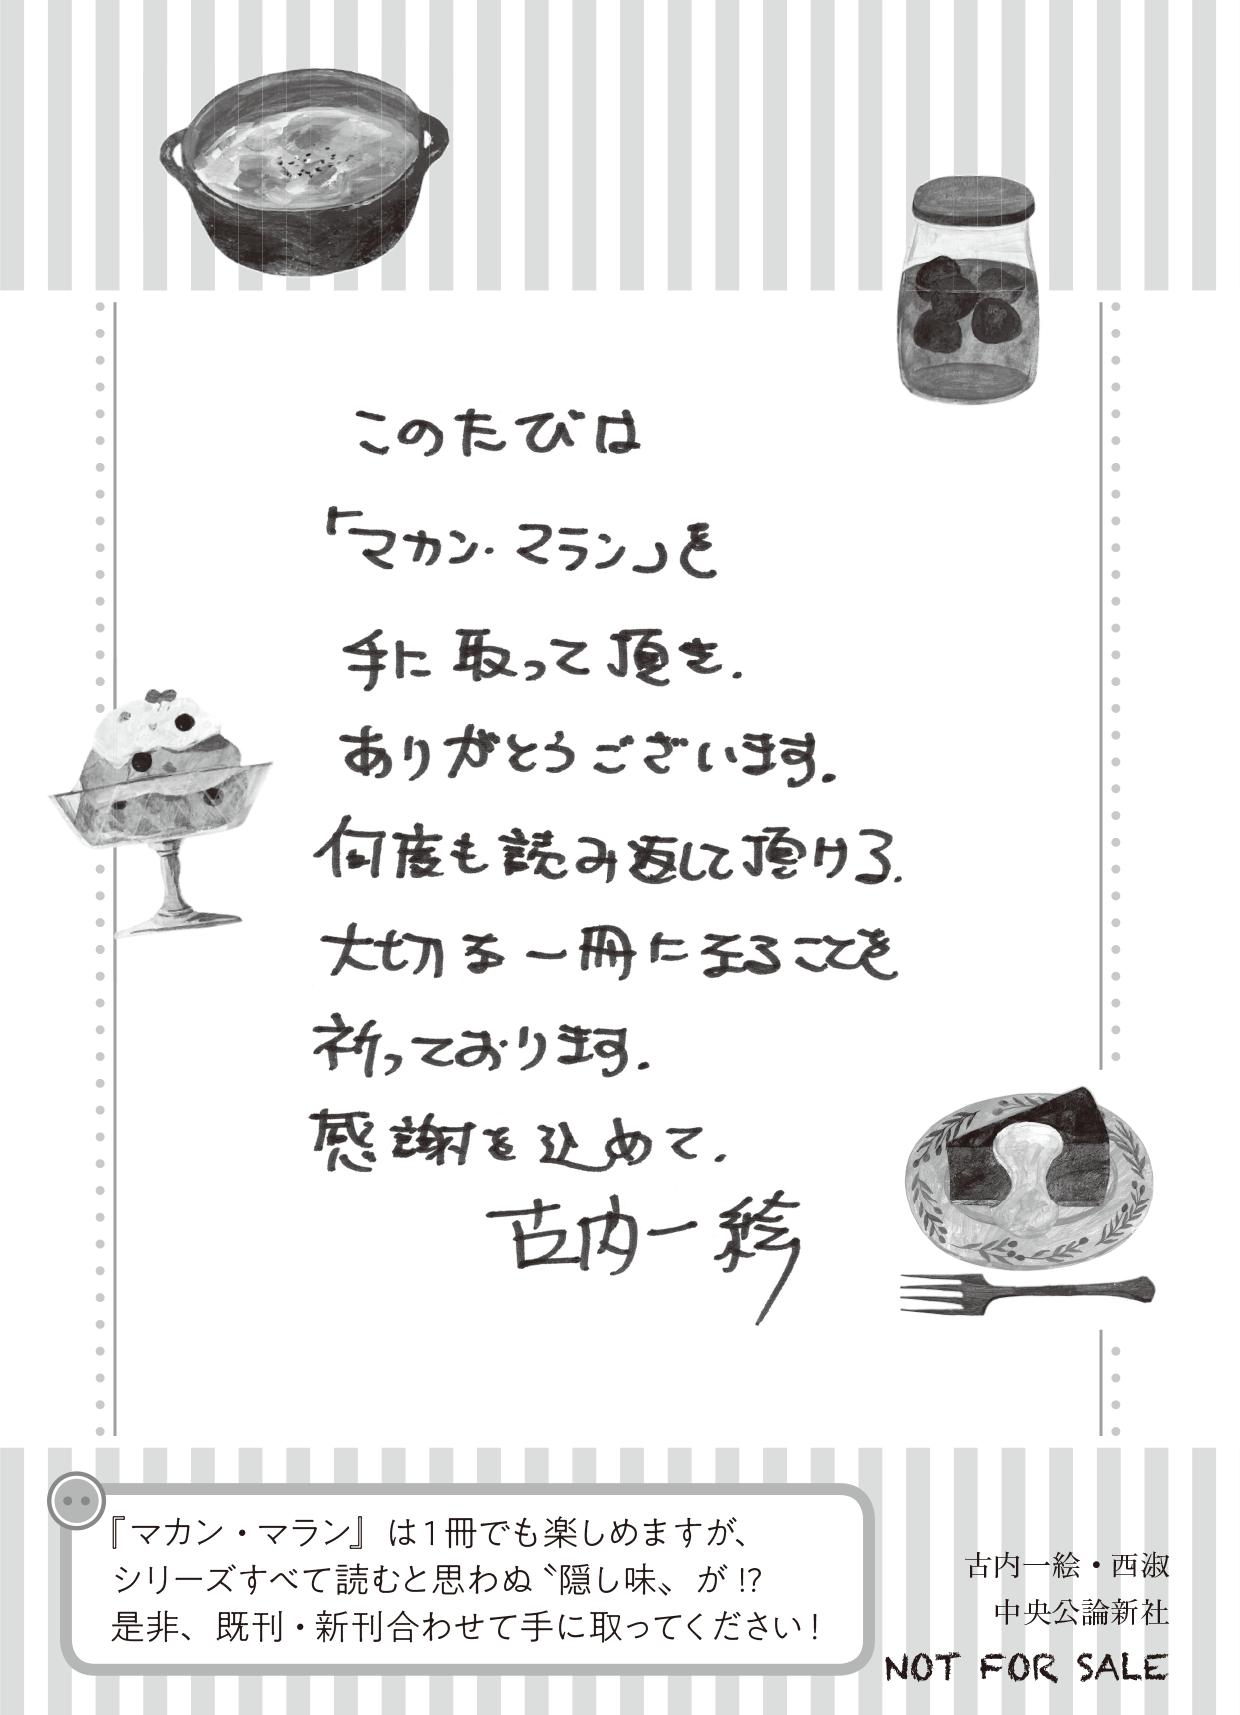 このたびは
「マカン・マラン」を
手に取って頂き.
ありがとうございます.
何度も読み返して頂ける.
大切な一冊になることを
祈っております.
感謝を込めて.
古内一絵
『マカン・マラン』は1冊でも楽しめますが、
シリーズすべて読むと思わぬ〝隠し味〟が!?
是非、既刊・新刊合わせて手に取ってください!
古内一絵・西淑
中央公論新社
NOT FOR SALE